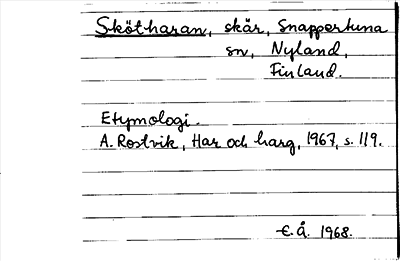 Skötharan, skär, Snappertuna
sn, Nyland,
Finland.
Etymologi.
A. Rostvik, Har och harg, 1967, s. 119.
E. Å. 1968.